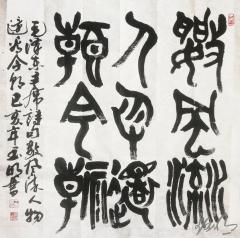 數風流
人物還
看今朝
毛澤東主席詩句數風流人物
還看今朝己亥年